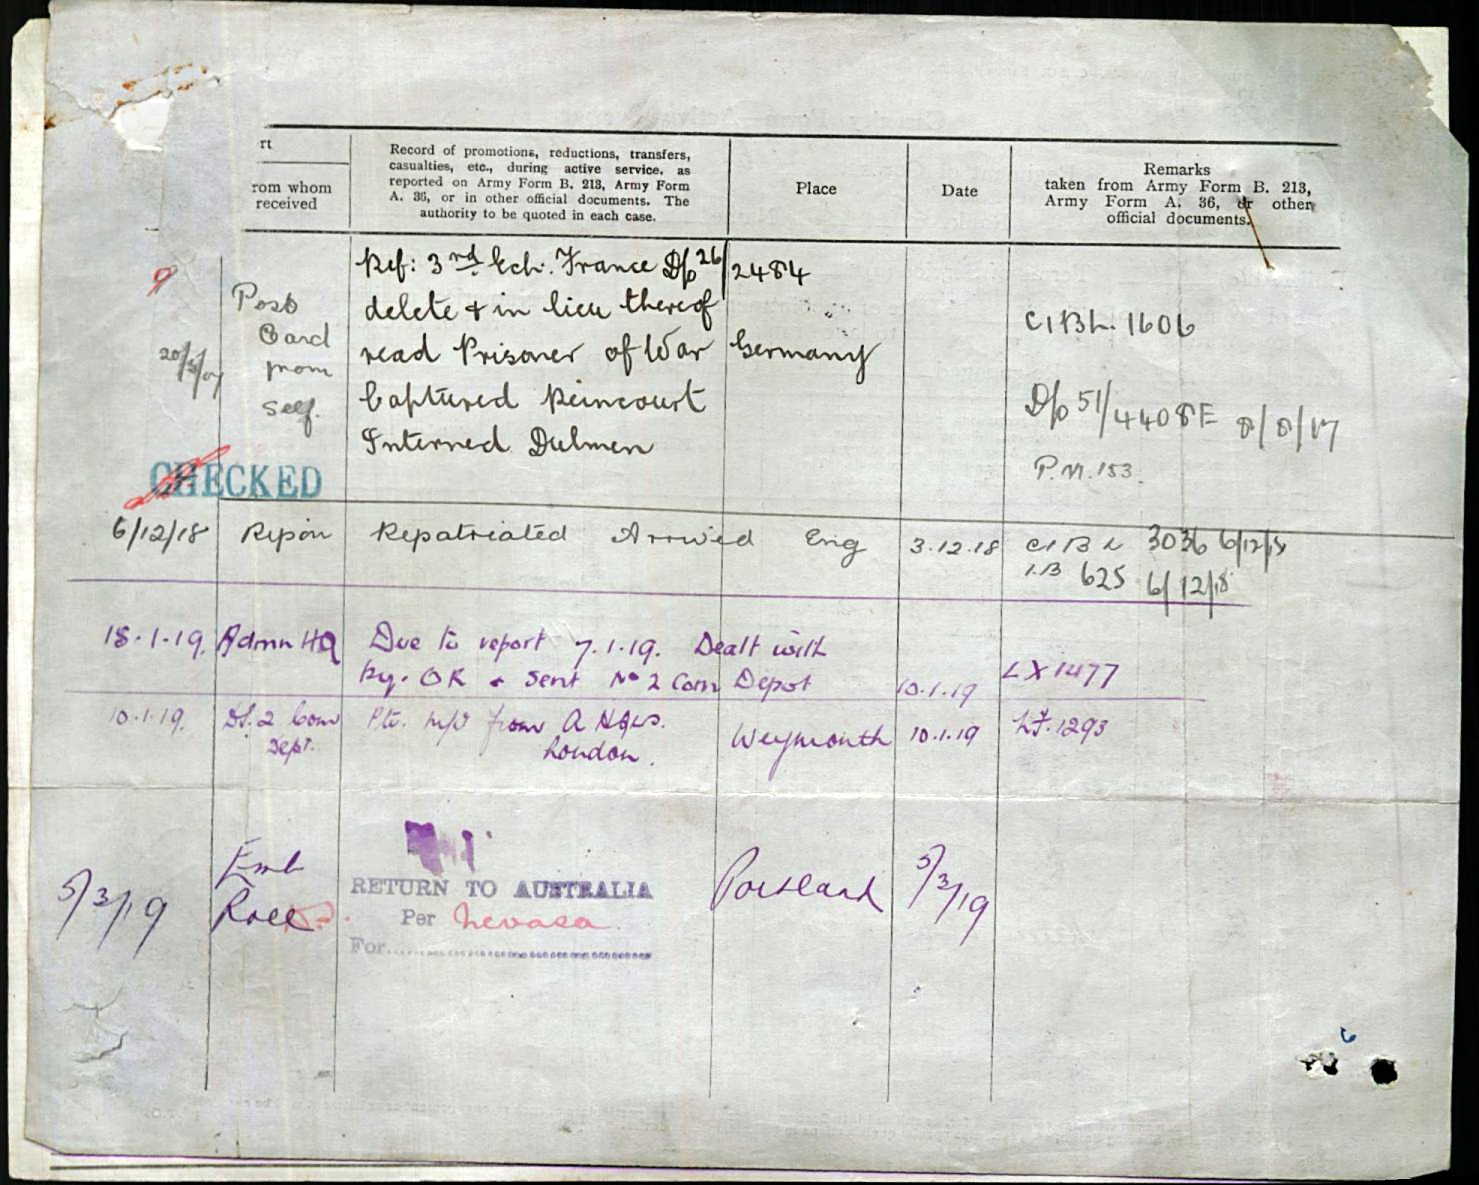 rt
rom whom
received
Record of promotions, reductions, transfers,
casualties, etc., during active service, as
reported on Army Form B. 213, Army Form
A. 36, or in other official documents. The
authority to be quoted in each case.
Place
Date
Remarks
taken from Army Form B. 213,
Army Form A. 36, or other
official documents.
9
Post
Card
from
self.
Ref: 3rd Ech. France D/o 26/2484
delete & in lieu thereof
read Prisoner of War
Captured Reincourt
Interned Dulmen
Germany
C1BL. 1606
D/o 51/4408E 8/8/17
P.M. 153.
CHECKED
6/12/18
Ripon
Repatriated Arrived Eng
3.12.18
C1BL 3036 6/12/18
1.B 625 6/12/18
18.1.19.
Admn HQ
Due to report 7.1.19. Dealt with
by. OR & sent No 2 Com Depot
10.1.19
LX1477
10.1.19.
2 Com
Dept.
Pte. m/i from A Hqrs.
London.
Weymouth
10.1.19
1293
5/3/19
Emb
Roll
RETURN TO AUSTRALIA
Per Nevasa.
For
Portland
5/3/19
6